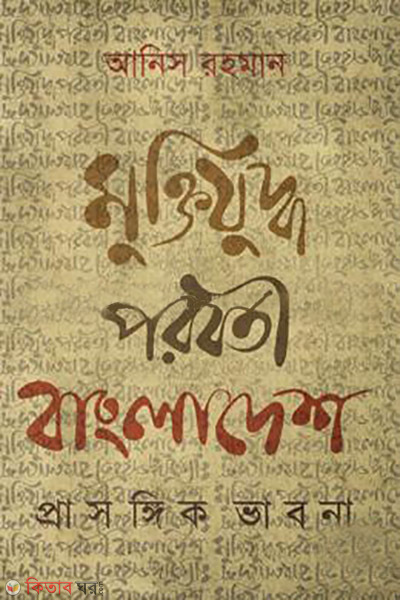 আনিস রহমান
মুক্তিযুদ্ধ
পরবর্তী
বাংলাদেশ
প্রাসঙ্গিক ভাবনা
কিতাব ঘর